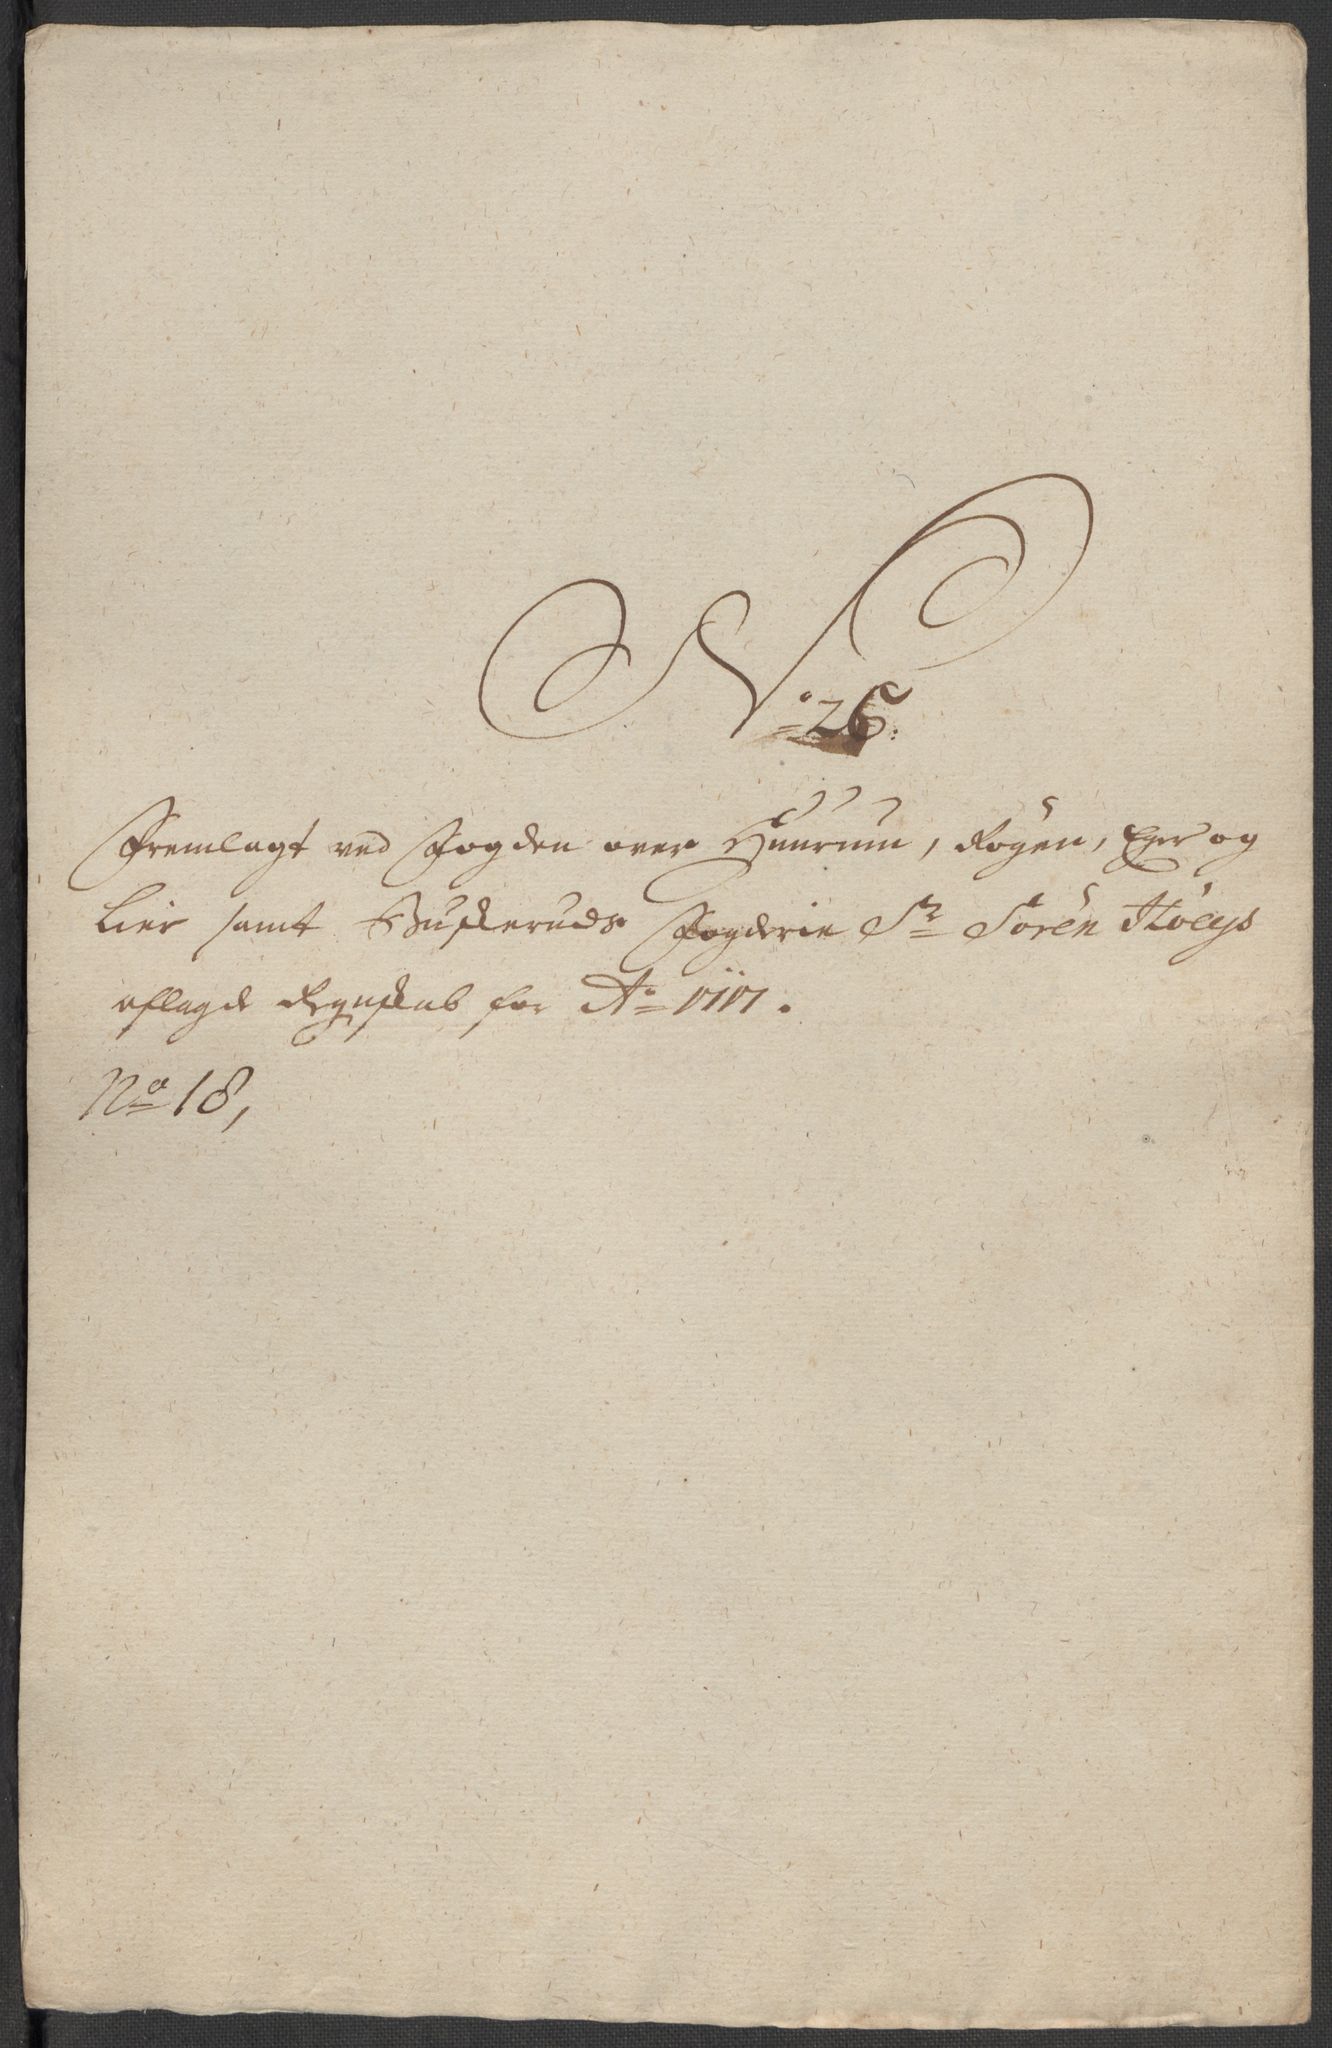 No 26:
Fremlagt ved Fogden over Huurum, Røgen, Eger og
Lier samt Buskeruds Fogderie Sr Sören Höeys
aflagde Regnskab for Ao 1717.
No 18,